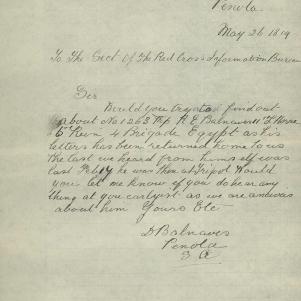 Penola
May 26 1919
To The Sect of The Red Cross Information Bureau
Sir
Would you try to find out
about No 1263 Trp R. E. Balnaves L Horse
Rein 4 Brigade Egypt as his
letters has been returned home to us
the last we heard from him self was
last Feby he was then at Tripoli Would
you let me know if you do hear any
thing at your earlyist as we are anxious
about him Yours Etc
D Balnaves
Penola
S A